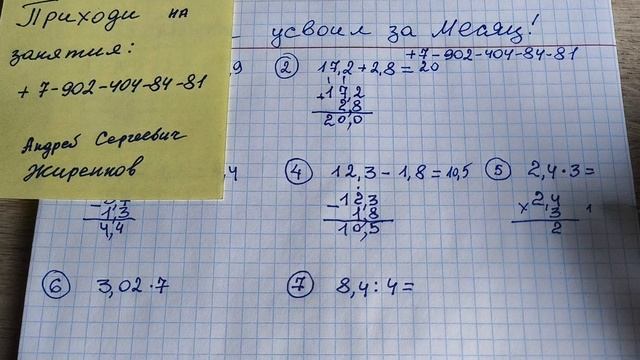 Приходи на
занятия:
+ 7-902-404-84-81
Андрей Сергеевич
Жиренков
усвоил за месяц!
+7-902-404-84-81
,9
2 17,2 + 2,8 = 20
+17,2
2,8
20,0
,4
4 12,3 - 1,8 = 10,5
5 2,4 · 3 =
1,3
4,4
- 12,3
1,8
10,5
× 2,4
3
2
6 3,02 · 7
7 8,4 : 4 =